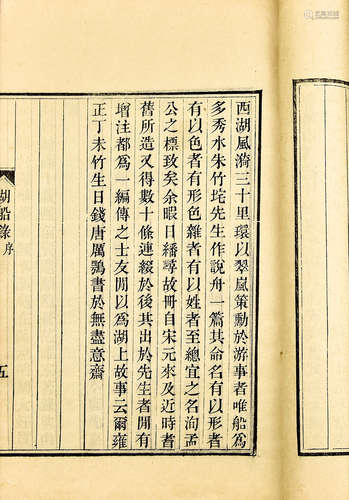 西湖風漪三十里環以翠嵐策勳於游事者唯船爲
多秀水朱竹垞先生作說舟一篇其命名有以形者
有以色者有形色雜者有以姓者至總宜之名洵孟
公之標致矣余暇日繙尋故冊自宋元來及近時耆
舊所造又得數十條連綴於後其出於先生者閒有
增注都爲一編傳之士友閒以爲湖上故事云爾雍
正丁未竹生日錢唐厲鶚書於無盡意齋
湖船錄 序
五